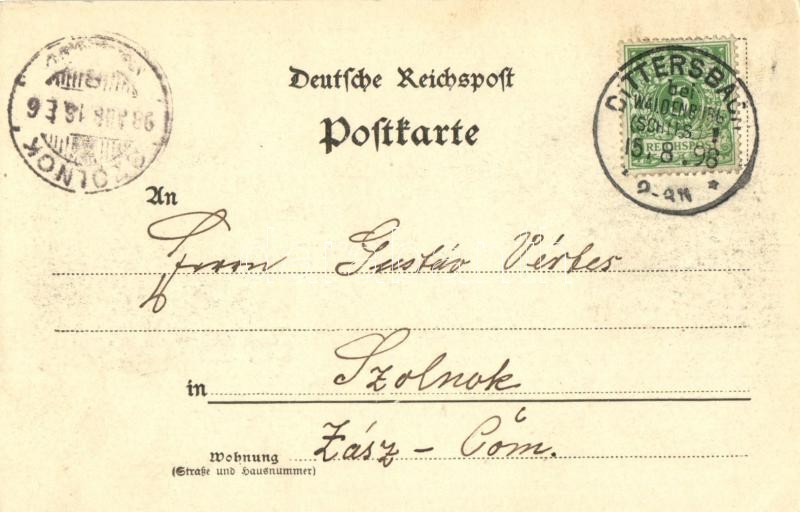 Deutsche Reichspost
Postkarte
DITTERSBACH
bei
WALDENBURG
(SCHLES.)
15. 8. 98
REICHSPOST
SZOLNOK
98 AUG 16 E6
An
Herrn Gustáv Vértes
in Szolnok
Wohnung Zász – Cőm.
(Straße und Hausnummer)